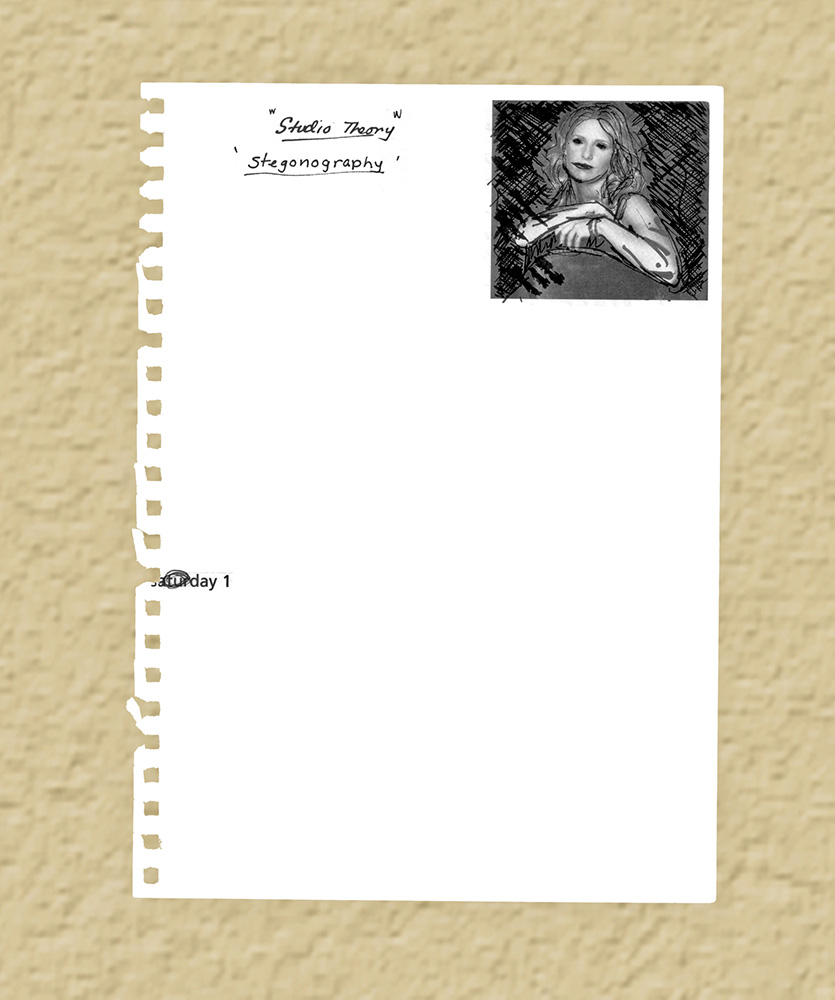 "Studio Theory"
'Stegonography'
saturday 1